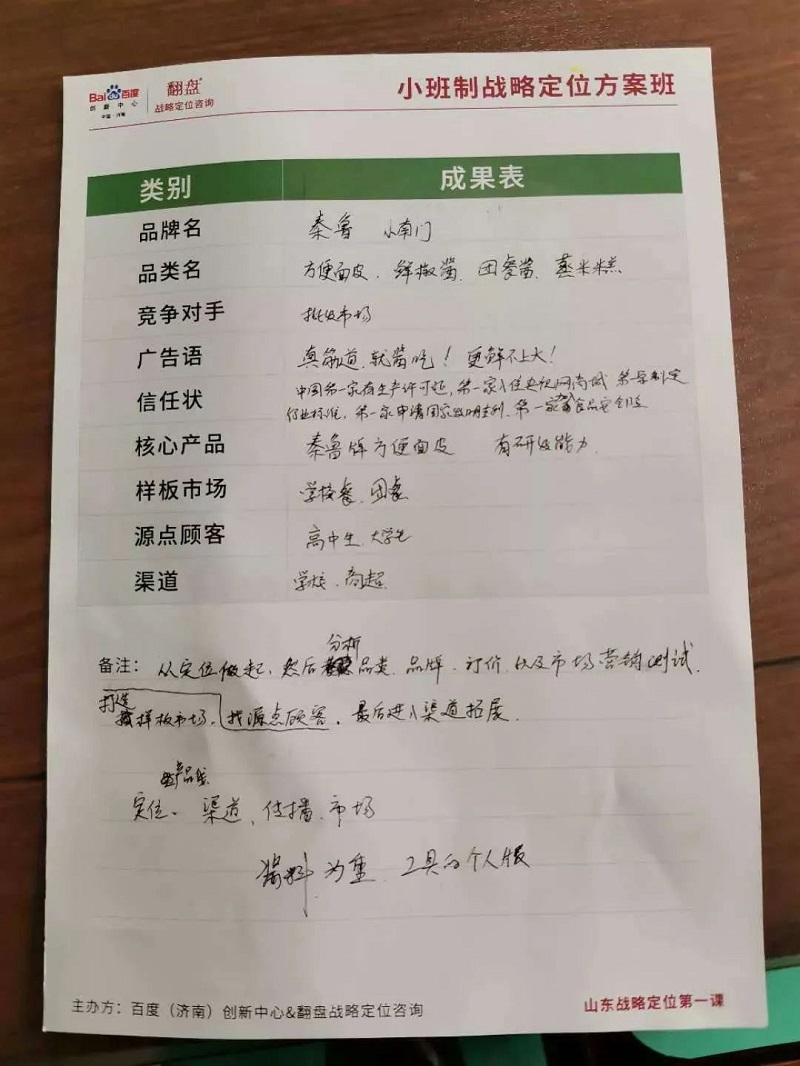 Bai百度
创新中心
中国·济南
翻盘
战略定位咨询
小班制战略定位方案班
类别 成果表
品牌名 秦鲁 小南门
品类名 方便面皮、鲜椒酱、团餐酱、蒸米糕
竞争对手 批发市场
广告语 真筋道,就酱吃!更鲜不上火!
信任状 中国第一家有生产许可证,第一家入住央视网商城 第一家制定
行业标准,第一家申请国家发明专利,第一家食品安全
核心产品 秦鲁牌方便面皮 有研发能力
样板市场 学校餐、团餐
源点顾客 高中生、大学生
渠道 学校、商超
备注:从定位做起,然后分析品类、品牌、订价、以及市场营销测试,
打造样板市场,找源点顾客,最后进入渠道拓展。
产品线
定位、渠道、传播、市场
酱料为重 工具的个人版
主办方:百度(济南)创新中心&翻盘战略定位咨询
山东战略定位第一课